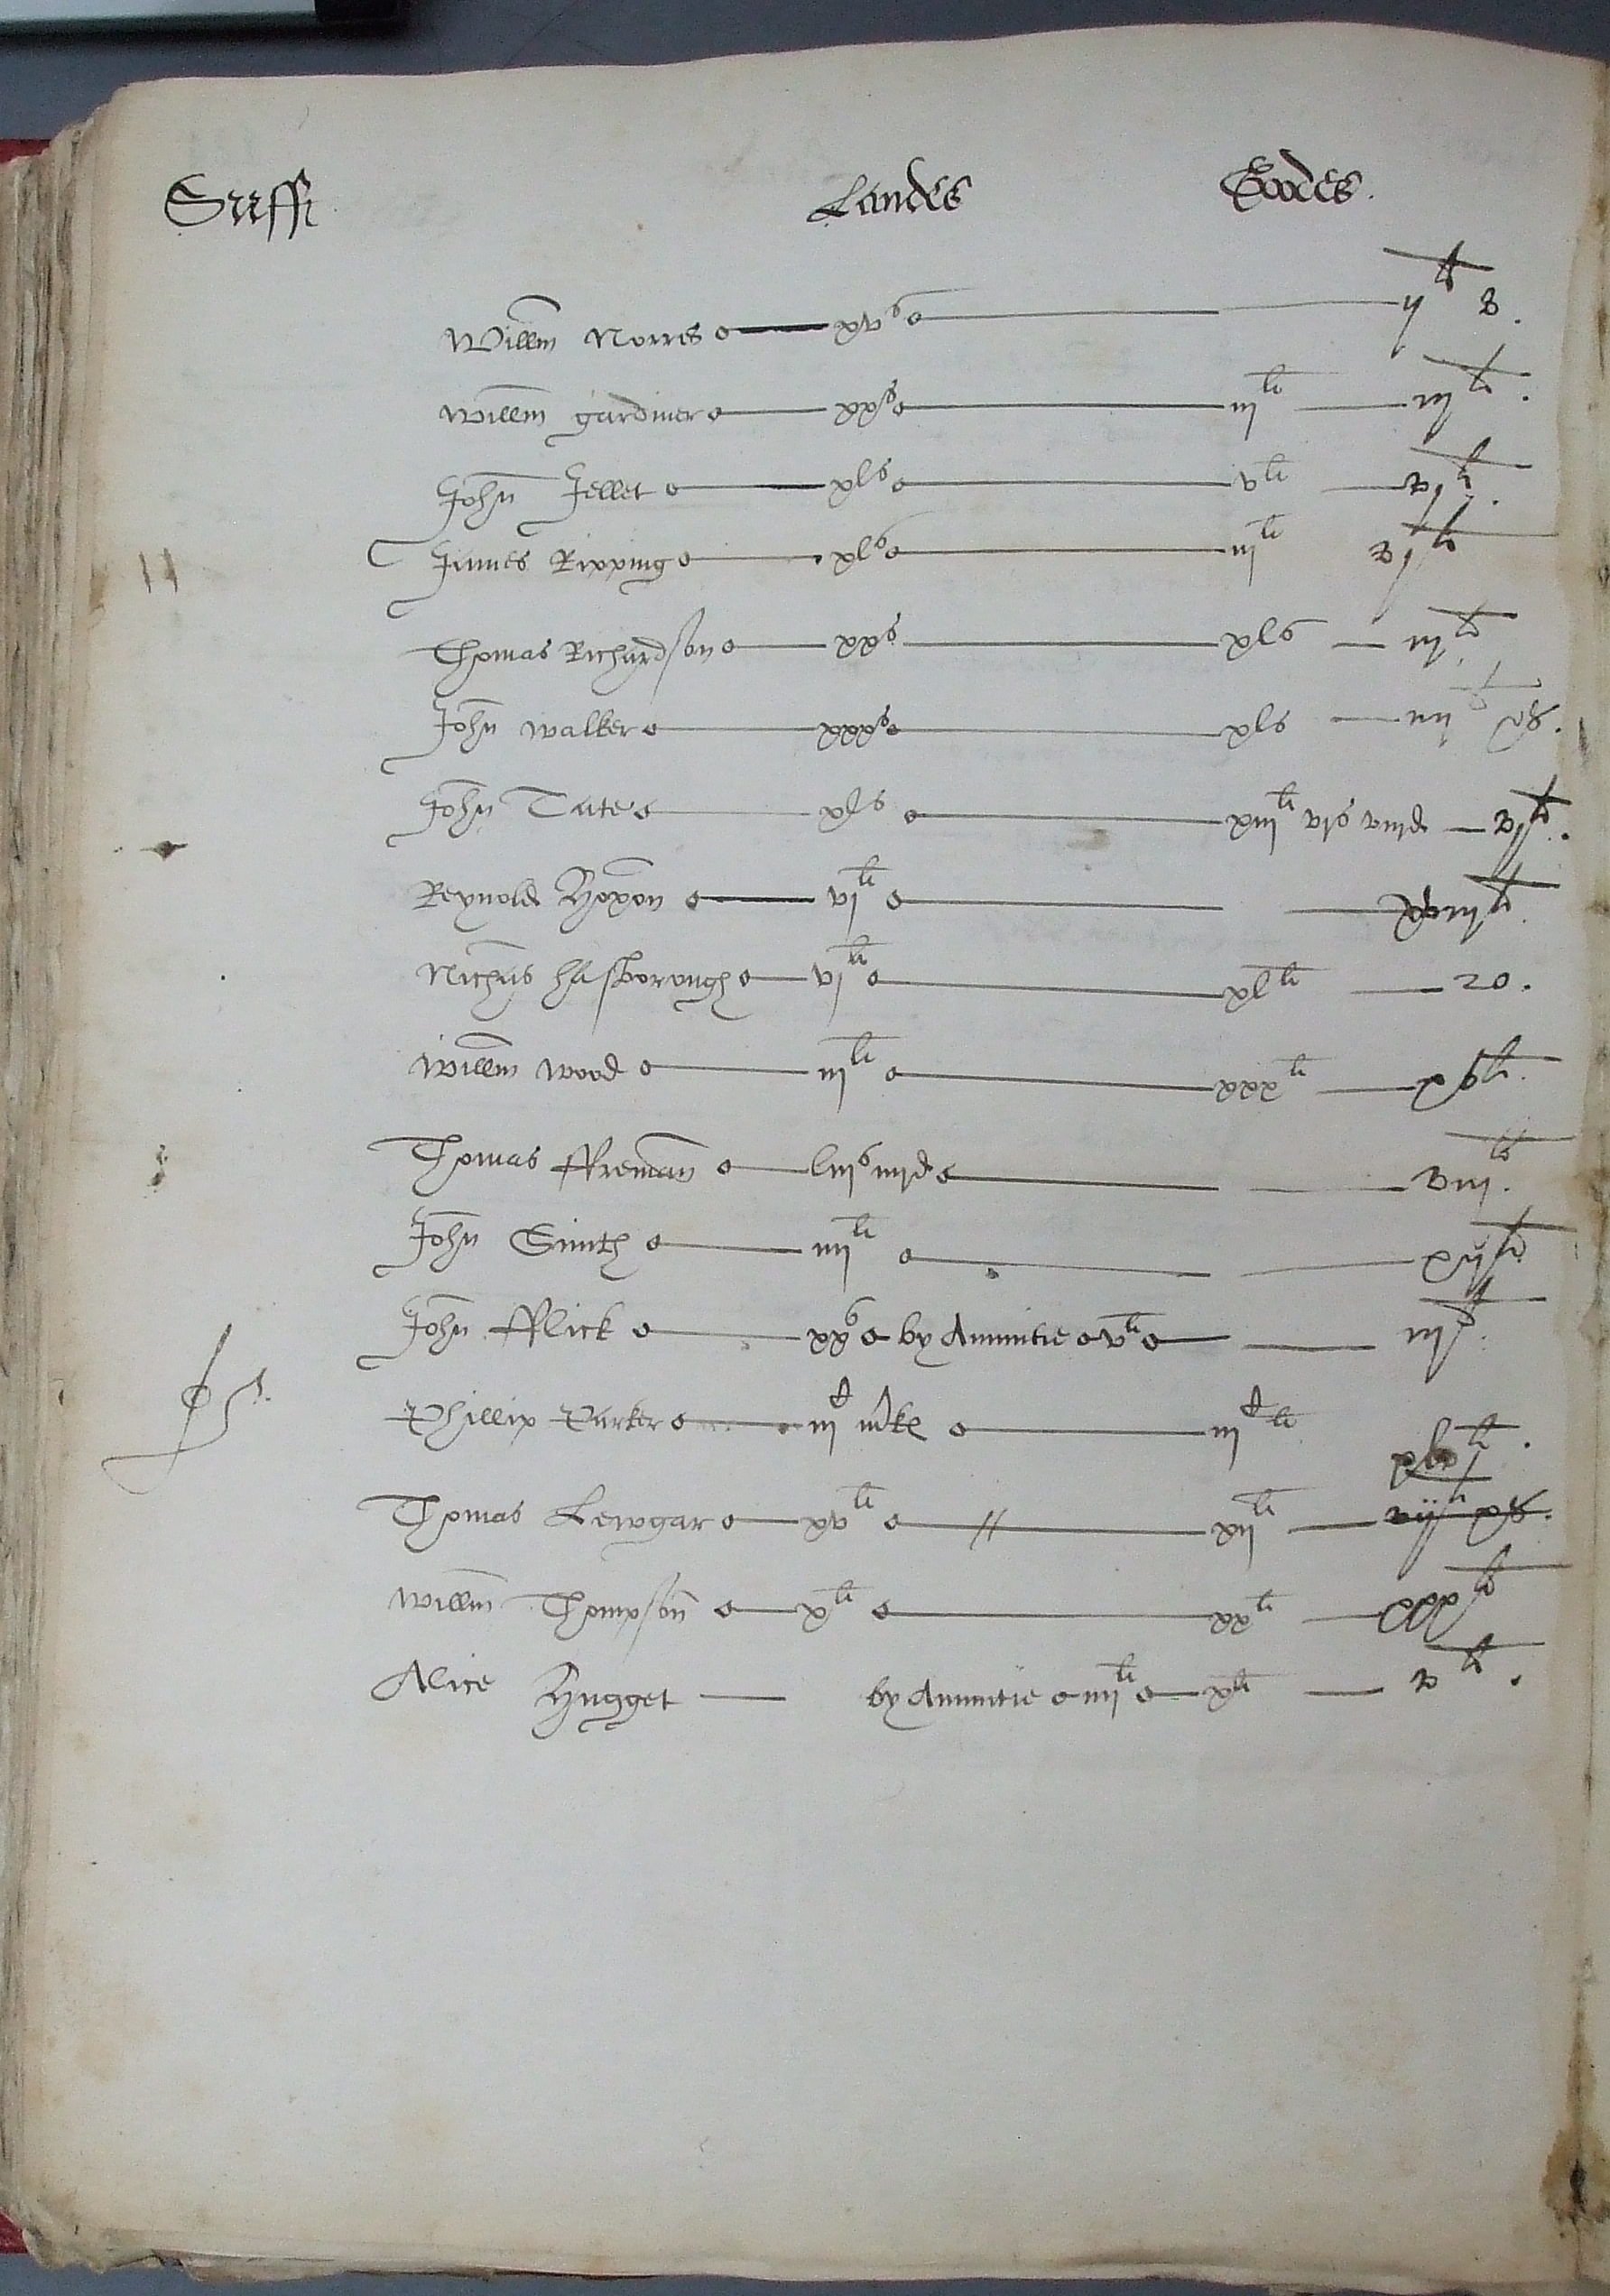 Suff Landes Goodes.
Willm Norres xvs ij li
Willm gardiner xxs iij li iij li
John Jellet xls v li vj li
James Ripping xls iij li vj li
Thomas Richardson xxs xls iij li
John walker xxxs xls iiij li xs.
John Tate xls xiij li vjs viijd vj li
Reynold Hoxon vj li xviij li
Nichus Hasborough vj li xl li 20.
willm wood iij li xxx li xv li
Thomas ffreman liijs iiijd viij li
John Smith iiij li xij li
John fflick xxs by Annuitie v li iij li
Phillip Parker iij mke iij li
Thomas Lewgar xv li xij li xlv li
vij li xs.
willm Thompson x li xx li xxx li
Alice Hugget by Annuitie iiij li x li v li